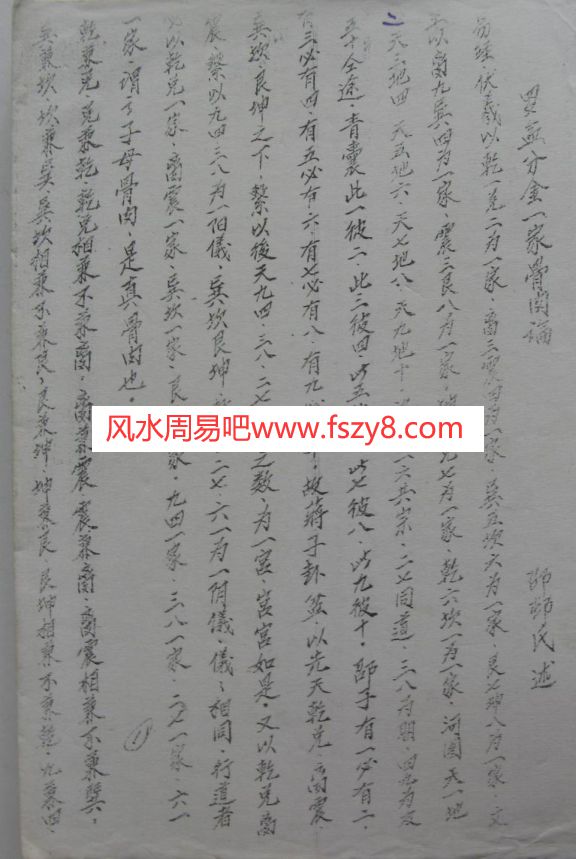 四盘分金一家骨肉论
邵师氏述
易经伏羲以乾一兑二为一家、离三震四为一家、巽五坎六为一家、艮七坤八为一家、文
王以离九巽四为一家、震三艮八为一家、坤二兑七为一家、乾六坎一为一家、河图天一地
二天三地四、天五地六、天七地八、天九地十、一六共宗、二七同道、三八为朋、四九为友
五十全途、青囊此一彼二、此三彼四、此五 此七彼八、此九彼十、邵子有一必有二、
有三必有四、有五必有六、有七必有八、有九 故蒋子卦盆、以先天乾兑离震、
巽坎、艮坤之下、繫以后天九四、三八、二七 之数、为一宫、宫宫如是、又以乾兑离
震、繫以九四三八为一阳仪、巽坎艮坤 二七、六一为一阴仪、仪仪相同、行道者
必以乾兑一家、离震一家、巽坎一家、艮 家、九四一家、三八一家、二七一家、六一
一家、谓之子母骨肉、是真骨肉也。
乾兼兑、兑兼乾、乾兑相兼不兼离、离兼震、震兼离、离震相兼不兼巽、
巽兼坎、坎兼巽、巽坎相兼不兼艮、艮兼坤、坤兼艮、艮坤相兼不兼乾、九兼四、
①
风水周易吧www.fszy8.com